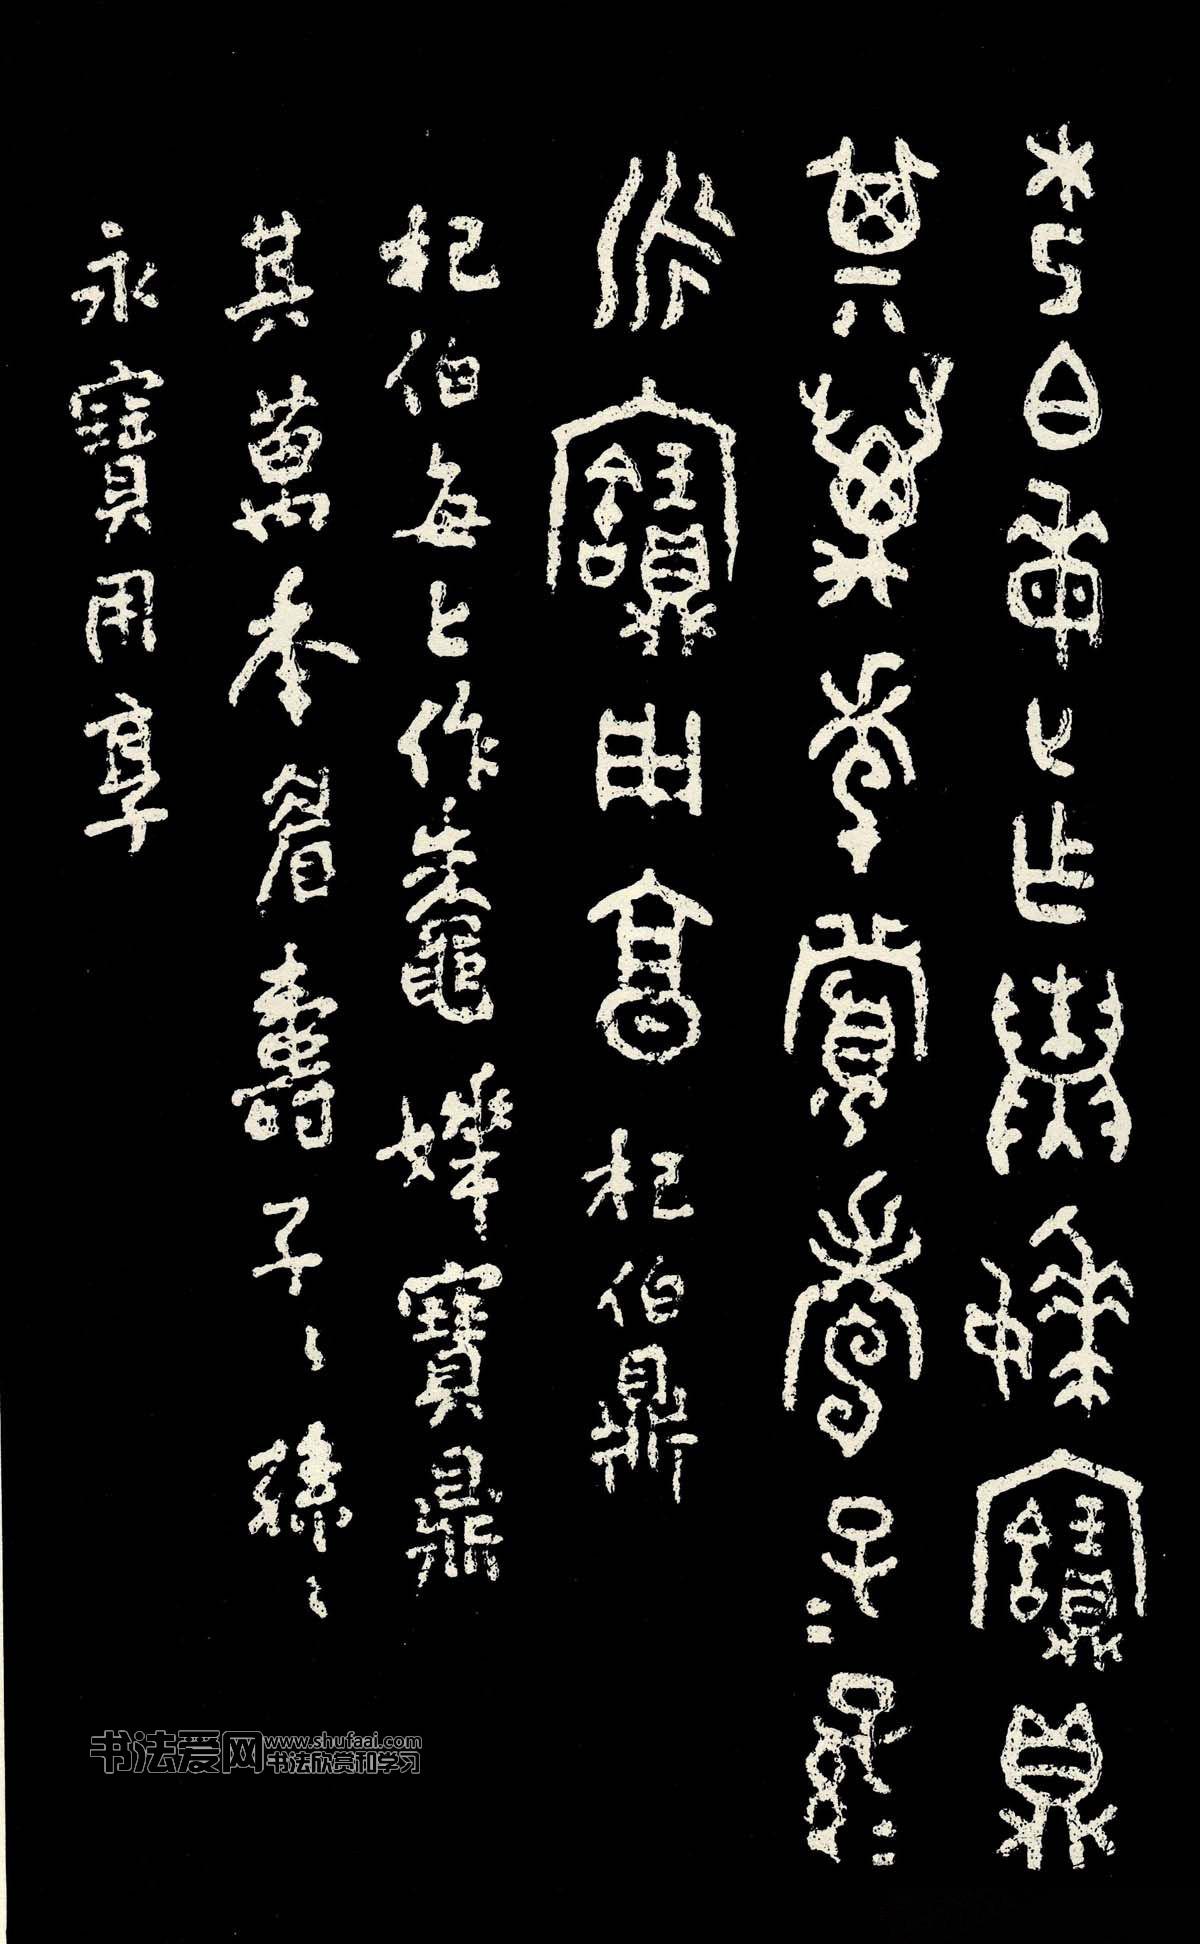 杞白每亡乍鼄嫀寶鼎
其萬年眉壽子〻孫〻
永寶用享 杞伯鼎
杞伯每亡作鼄嫀寶鼎
其萬年眉壽子〻孫〻
永寶用享
书法爱网 www.shufaai.com
书法欣赏和学习